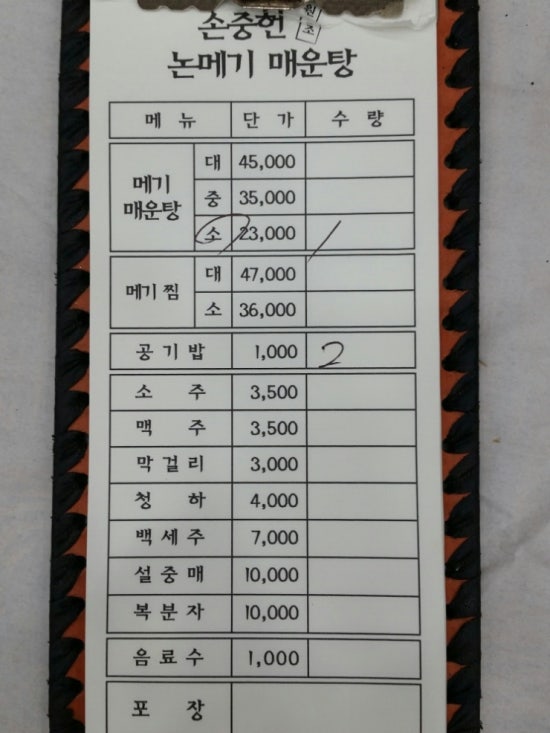 손중헌 원조
논메기 매운탕
메 뉴 단 가 수 량
메기 매운탕 대 45,000
중 35,000
소 23,000 /
메기 찜 대 47,000
소 36,000
공 기 밥 1,000 2
소 주 3,500
맥 주 3,500
막 걸 리 3,000
청 하 4,000
백 세 주 7,000
설 중 매 10,000
복 분 자 10,000
음 료 수 1,000
포 장